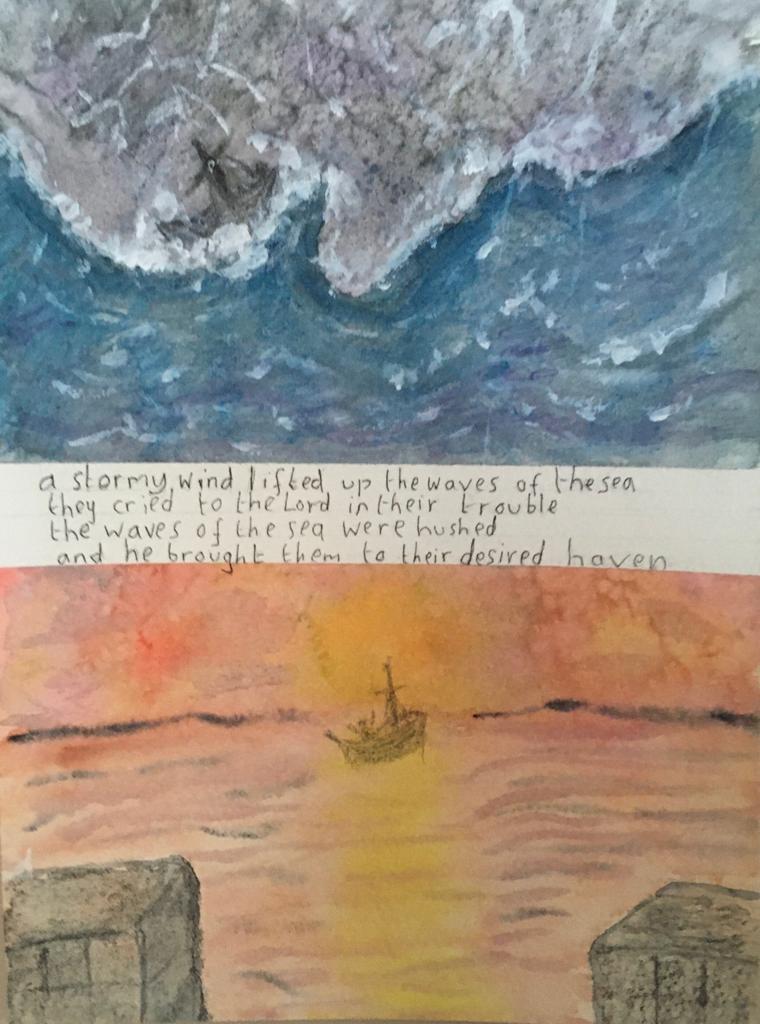 a stormy wind lifted up the waves of the sea
they cried to the Lord in their trouble
the waves of the sea were hushed
and he brought them to their desired haven